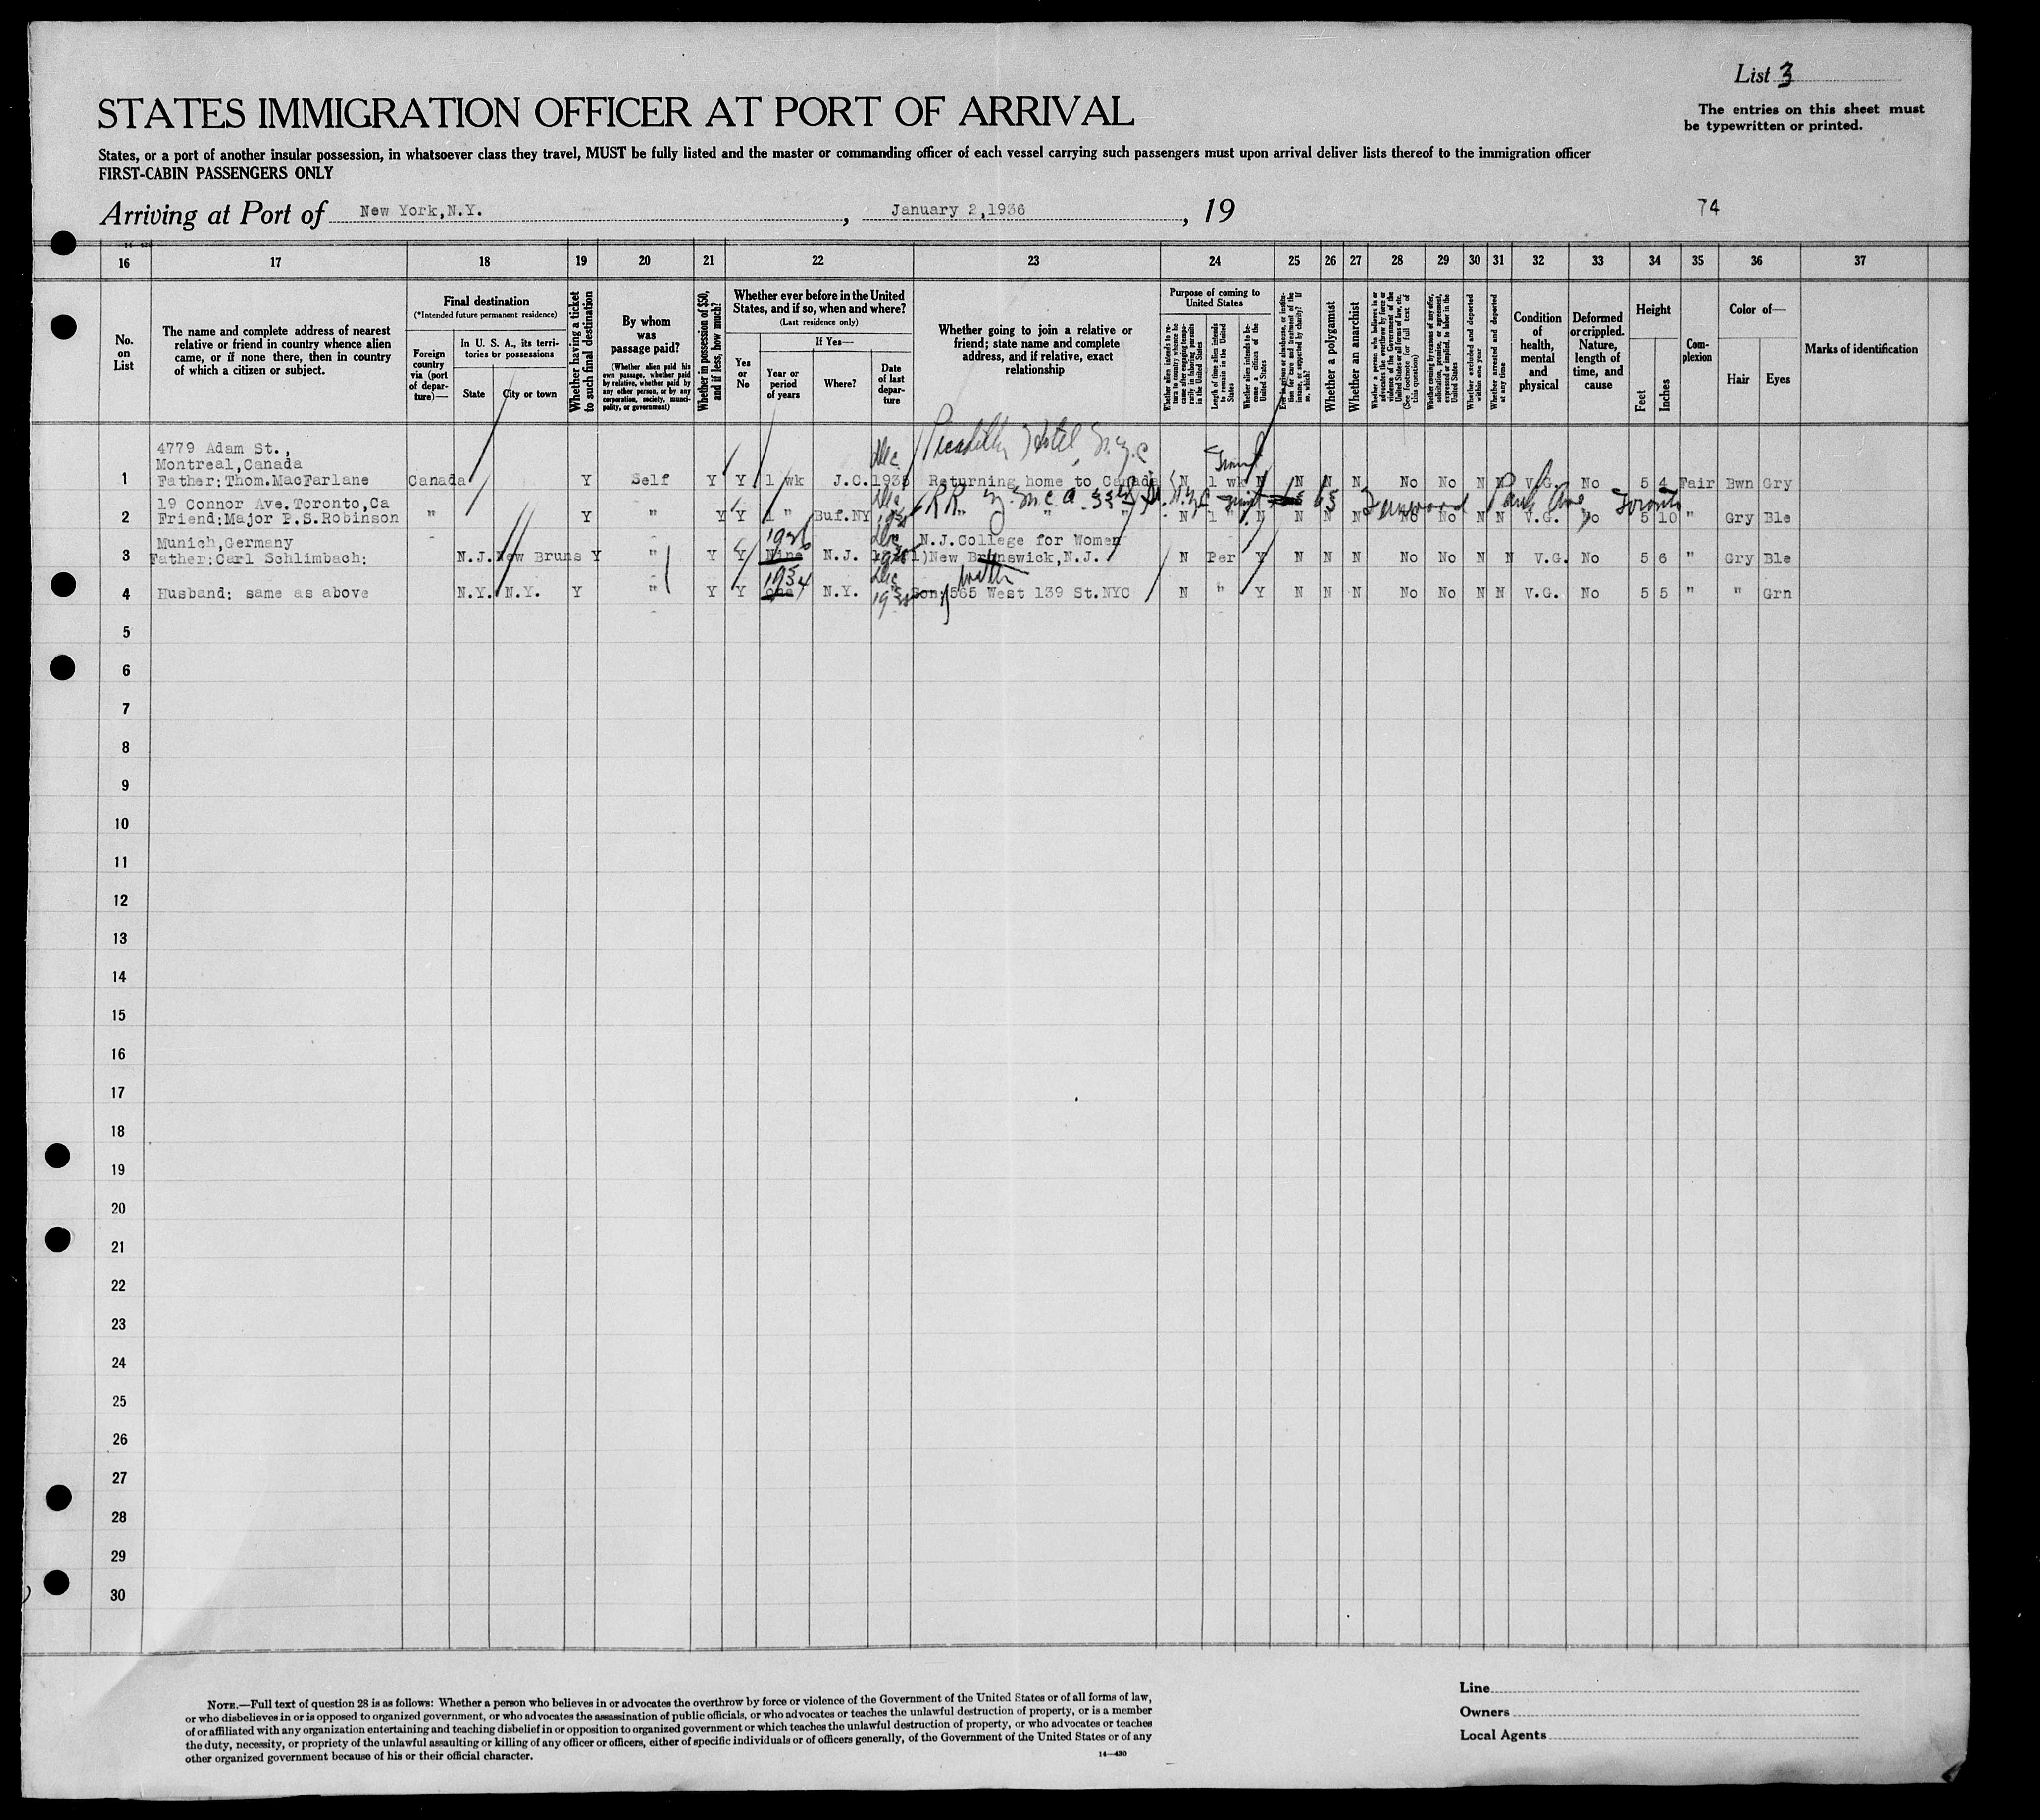 List 3
STATES IMMIGRATION OFFICER AT PORT OF ARRIVAL
The entries on this sheet must
be typewritten or printed.
States, or a port of another insular possession, in whatsoever class they travel, MUST be fully listed and the master or commanding officer of each vessel carrying such passengers must upon arrival deliver lists thereof to the immigration officer
FIRST-CABIN PASSENGERS ONLY
Arriving at Port of New York,N.Y. , January 2,1936 , 19
74
16 17 18 19 20 21 22 23 24 25 26 27 28 29 30 31 32 33 34 35 36 37
No.
on
List
The name and complete address of nearest
relative or friend in country whence alien
came, or if none there, then in country
of which a citizen or subject.
Final destination
(*Intended future permanent residence)
Foreign
country
via (port
of depar-
ture)—
In U. S. A., its terri-
tories or possessions
State
City or town
Whether having a ticket
to such final destination
By whom
was
passage paid?
(Whether alien paid his
own passage, whether paid
by relative, whether paid by
any other person, or by any
corporation, society, munici-
pality, or government)
Whether in possession of $50,
and if less, how much?
Whether ever before in the United
States, and if so, when and where?
(Last residence only)
Yes
or
No
If Yes—
Year or
period
of years
Where?
Date
of last
depar-
ture
Whether going to join a relative or
friend; state name and complete
address, and if relative, exact
relationship
Purpose of coming to
United States
Whether alien intends to re-
turn to country whence he
came after engaging tempo-
rarily in laboring pursuits
in the United States
Length of time alien intends
to remain in the United
States
Whether alien intends to be-
come a citizen of the
United States
Ever in prison or almshouse, or institu-
tion for care and treatment of the
insane, or supported by charity? If
so, which?
Whether a polygamist
Whether an anarchist
Whether a person who believes in or
advocates the overthrow by force or
violence of the Government of the
United States or all forms of law, etc.
(See footnote for full text of
this question)
Whether coming by reason of any offer,
solicitation, promise, or agreement,
expressed or implied, to labor in the
United States
Whether excluded and deported
within one year
Whether arrested and deported
at any time
Condition
of
health,
mental
and
physical
Deformed
or crippled.
Nature,
length of
time, and
cause
Height
Feet
Inches
Com-
plexion
Color of—
Hair
Eyes
Marks of identification
4779 Adam St.,
Montreal,Canada
Dec Picadilly Hotel, N.Y.C
1 Father:Thom.MacFarlane Canada Y Self Y Y 1 wk J.C. 1935 Returning home to Canada N 1 wk N N N N No No N N V.G. No 5 4 Fair Bwn Gry
19 Connor Ave.Toronto,Ca
Dec RR Y.M.C.A.
2 Friend:Major P.S.Robinson " Y " Y Y 1 " Buf.NY 1935 " " " N 1 " N N N N No No N N V.G. No 5 10 " Gry Ble
Munich,Germany
1926 Dec N.J.College for Women
3 Father:Carl Schlimbach: N.J. New Bruns Y " Y Y Nine N.J. 1935 New Brunswick,N.J. N Per Y N N N No No N N V.G. No 5 6 " Gry Ble
1934 Dec
4 Husband: same as above N.Y. N.Y. Y " Y Y one N.Y. 1935 Son: 565 West 139 St.NYC N " Y N N N No No N N V.G. No 5 5 " " Grn
5
6
7
8
9
10
11
12
13
14
15
16
17
18
19
20
21
22
23
24
25
26
27
28
29
30
NOTE.—Full text of question 28 is as follows: Whether a person who believes in or advocates the overthrow by force or violence of the Government of the United States or of all forms of law,
or who disbelieves in or is opposed to organized government, or who advocates the assassination of public officials, or who advocates or teaches the unlawful destruction of property, or is a member
of or affiliated with any organization entertaining and teaching disbelief in or opposition to organized government or which teaches the unlawful destruction of property, or who advocates or teaches
the duty, necessity, or propriety of the unlawful assaulting or killing of any officer or officers, either of specific individuals or of officers generally, of the Government of the United States or of any
other organized government because of his or their official character.
14—430
Line
Owners
Local Agents